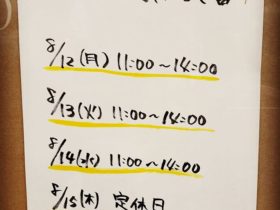 8/12(月) 11:00～14:00
8/13(火) 11:00～14:00
8/14(水) 11:00～14:00
8/15(木) 定休日